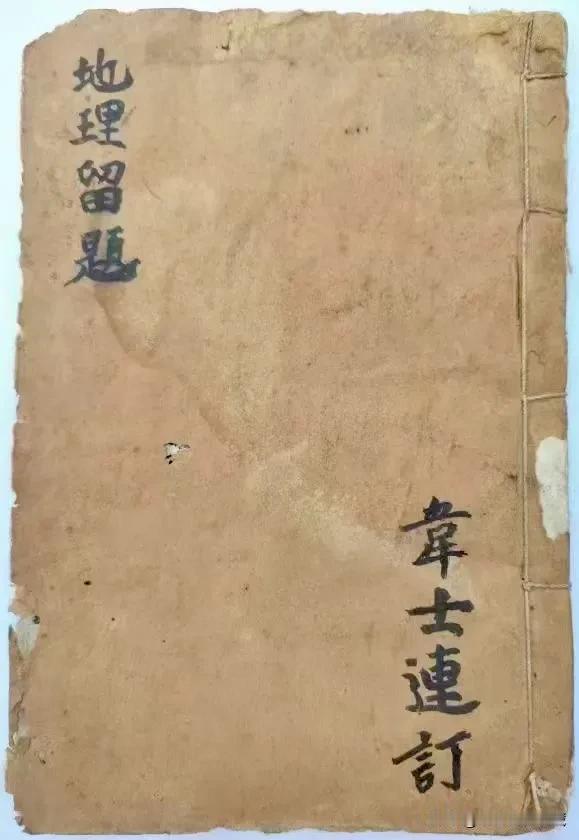 地理留題
韋士連訂